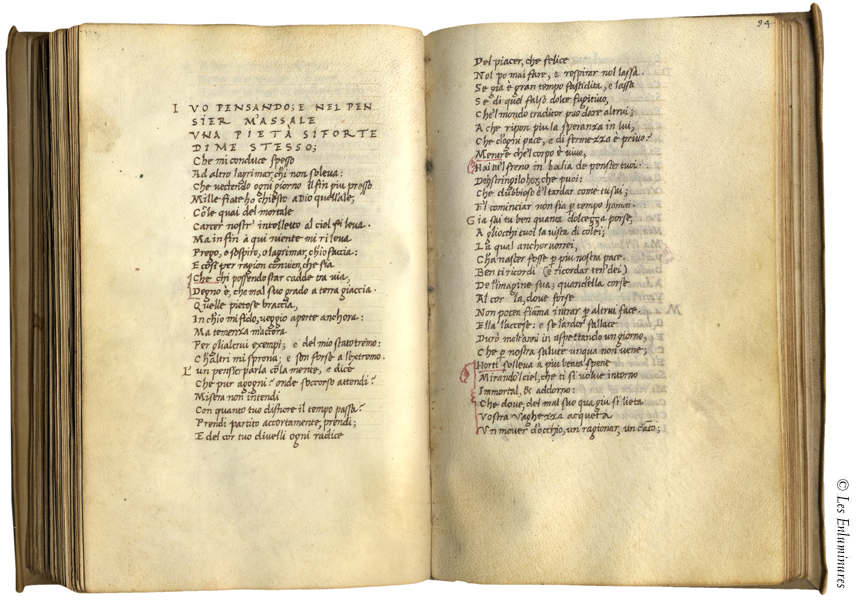 I VO PENSANDO; E NEL PEN
SIER M'ASSALE
VNA PIETÀ SI FORTE
DI ME STESSO;
Che mi conduce spesso
Ad altro lagrimar, chi non soleva:
Che vedendo ogni giorno il fin piu presso
Mille fiate ho chiesto a Dio quell'ale,
Cõ le quai del mortale
Carcer nostr' intelletto al ciel si leva.
Ma in fin à qui niente mi rileva
Prego, o sospiro, o lagrimar, ch'io faccia:
E cosi per ragion convien, che sia
Che chi possendo star cadde tra via,
Degno è, che mal suo grado a terra giaccia.
Quelle pietose braccia,
In ch'io mi fido, veggio aperte anchora:
Ma temenza m'accora
Per gli altrui exempi; e del mio stato tremo:
Ch'altri mi sprona; e son forse a l'extremo.
L' un pensier parla cõ la mente, e dice
Che pur agogni? onde soccorso attendi?
Misera non intendi
Con quanto tuo disnore il tempo passa?
Prendi partito accortamente, prendi;
E del cor tuo divelli ogni radice
94
Del piacer, che felice
Nol po mai fare, e respirar nol lassa.
Se gia è gran tempo fastidita, e lassa
Se' di quel falso dolce fugitivo,
Che'l mondo traditor può dare altrui;
A che ripon piu la speranza in lui,
Che d'ogni pace, e di fermezza è privo?
Mentre che'l corpo è vivo,
Hai tu'l freno in bailia de pensier tuoi.
Deh stringilo hor, che puoi:
Che dubbioso è'l tardar come tu sai;
E'l cominciar non fia p tempo homai.
Gia sai tu ben quanta dolcezza porse,
A gliocchi tuoi la vista di colei;
La qual anchor vorrei,
Ch'a nascer fosse p piu nostra pace.
Ben ti ricordi (e ricordar ten'dei)
De l'imagine sua; quand'ella corse
Al cor la, dove forse
Non potea fiãma intrar p altrui face.
Ella l'accese: e se l'ardor fallace
Durò molt'anni in aspettando un giorno,
Che p nostra salute unqua non vene;
Hor ti solleva a piu beata spene
Mirando'l ciel, che ti si volve intorno
Immortal, & addorno:
Che dove, del mal suo qua giu si lieta
Vostra vaghezza acqueta
Un mover d'occhio, un ragionar, un cãto;
© Les Enluminures